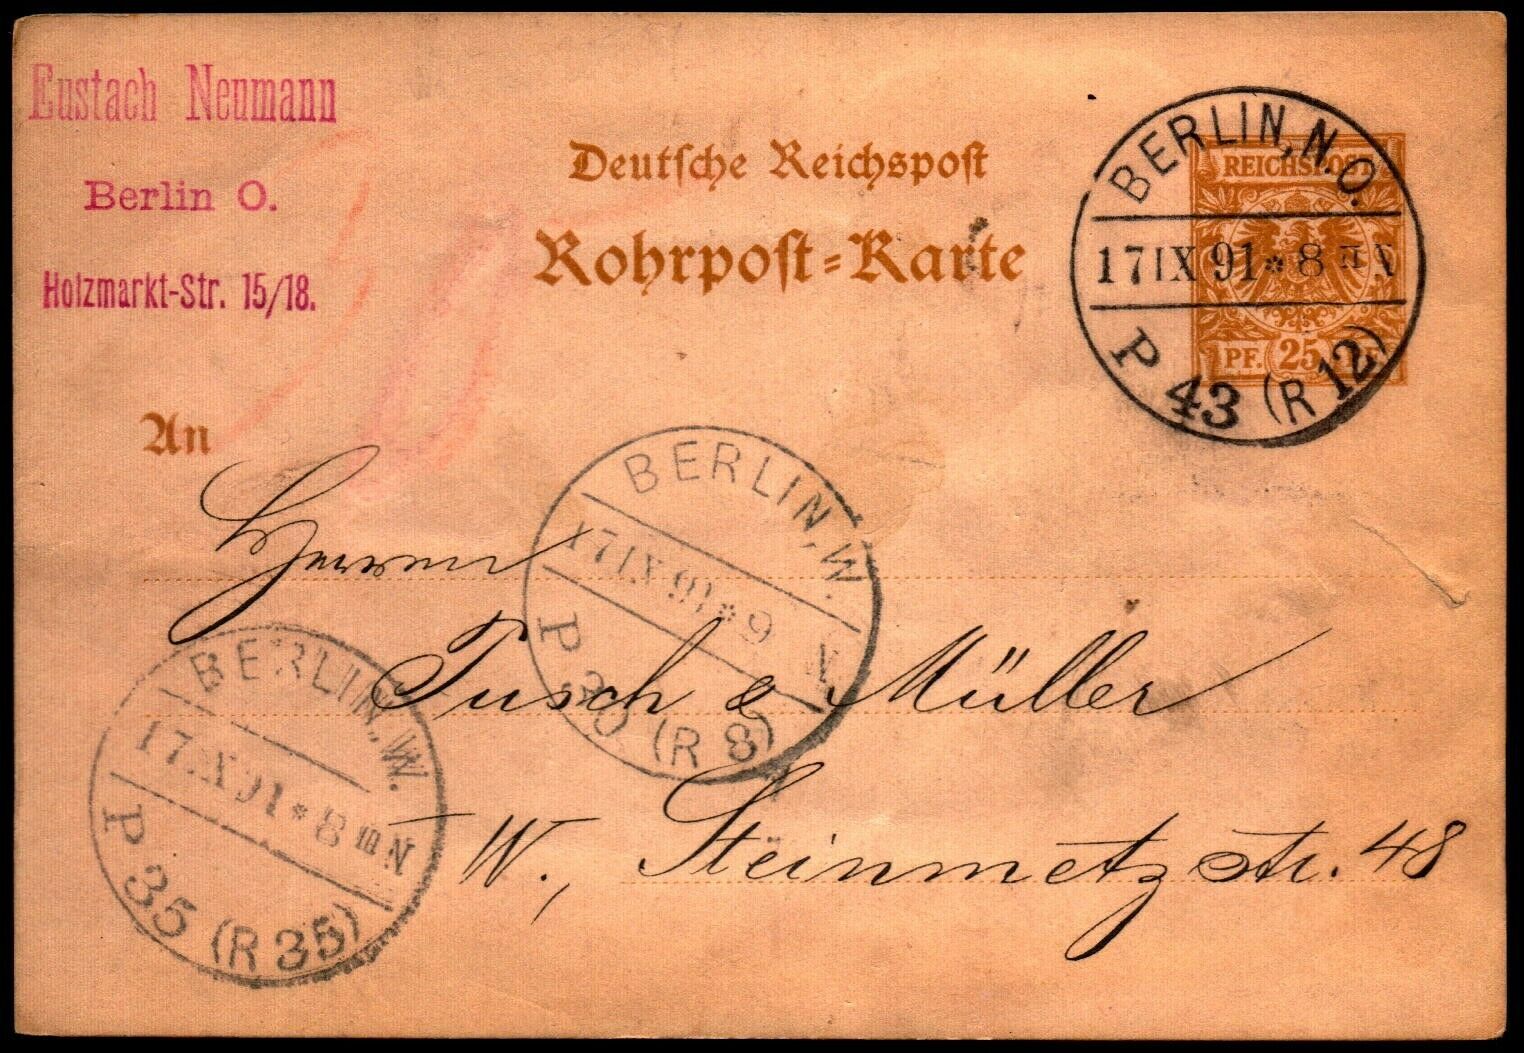 Eustach Neumann
Berlin O.
Holzmarkt-Str. 15/18.
Deutſche Reichspoſt
Rohrpoſt-Karte
REICHSPOST
PF. 25 PF.
BERLIN, N.O.
17 IX 91 * 8 II N
P 43 (R 12)
An
Herren
Tusch & Müller
W., Steinmetzstr. 48
BERLIN, W.
17 IX 91 * 9 N
P 30 (R 8)
BERLIN, W.
17 IX 91 * 8 III N
P 35 (R 35)